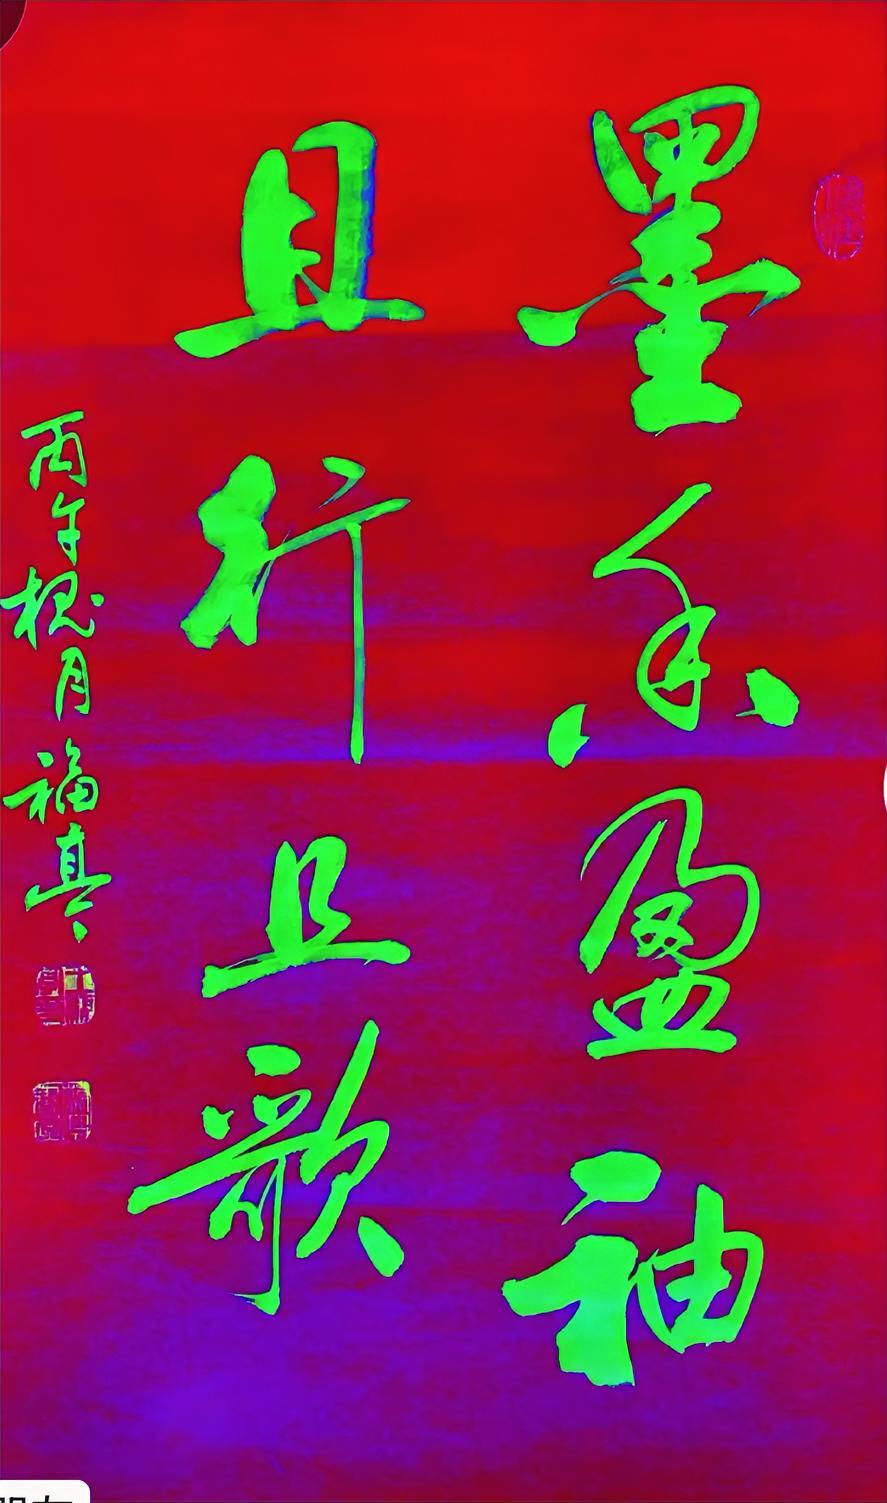 墨香盈袖
且行且歌
丙午槐月福真